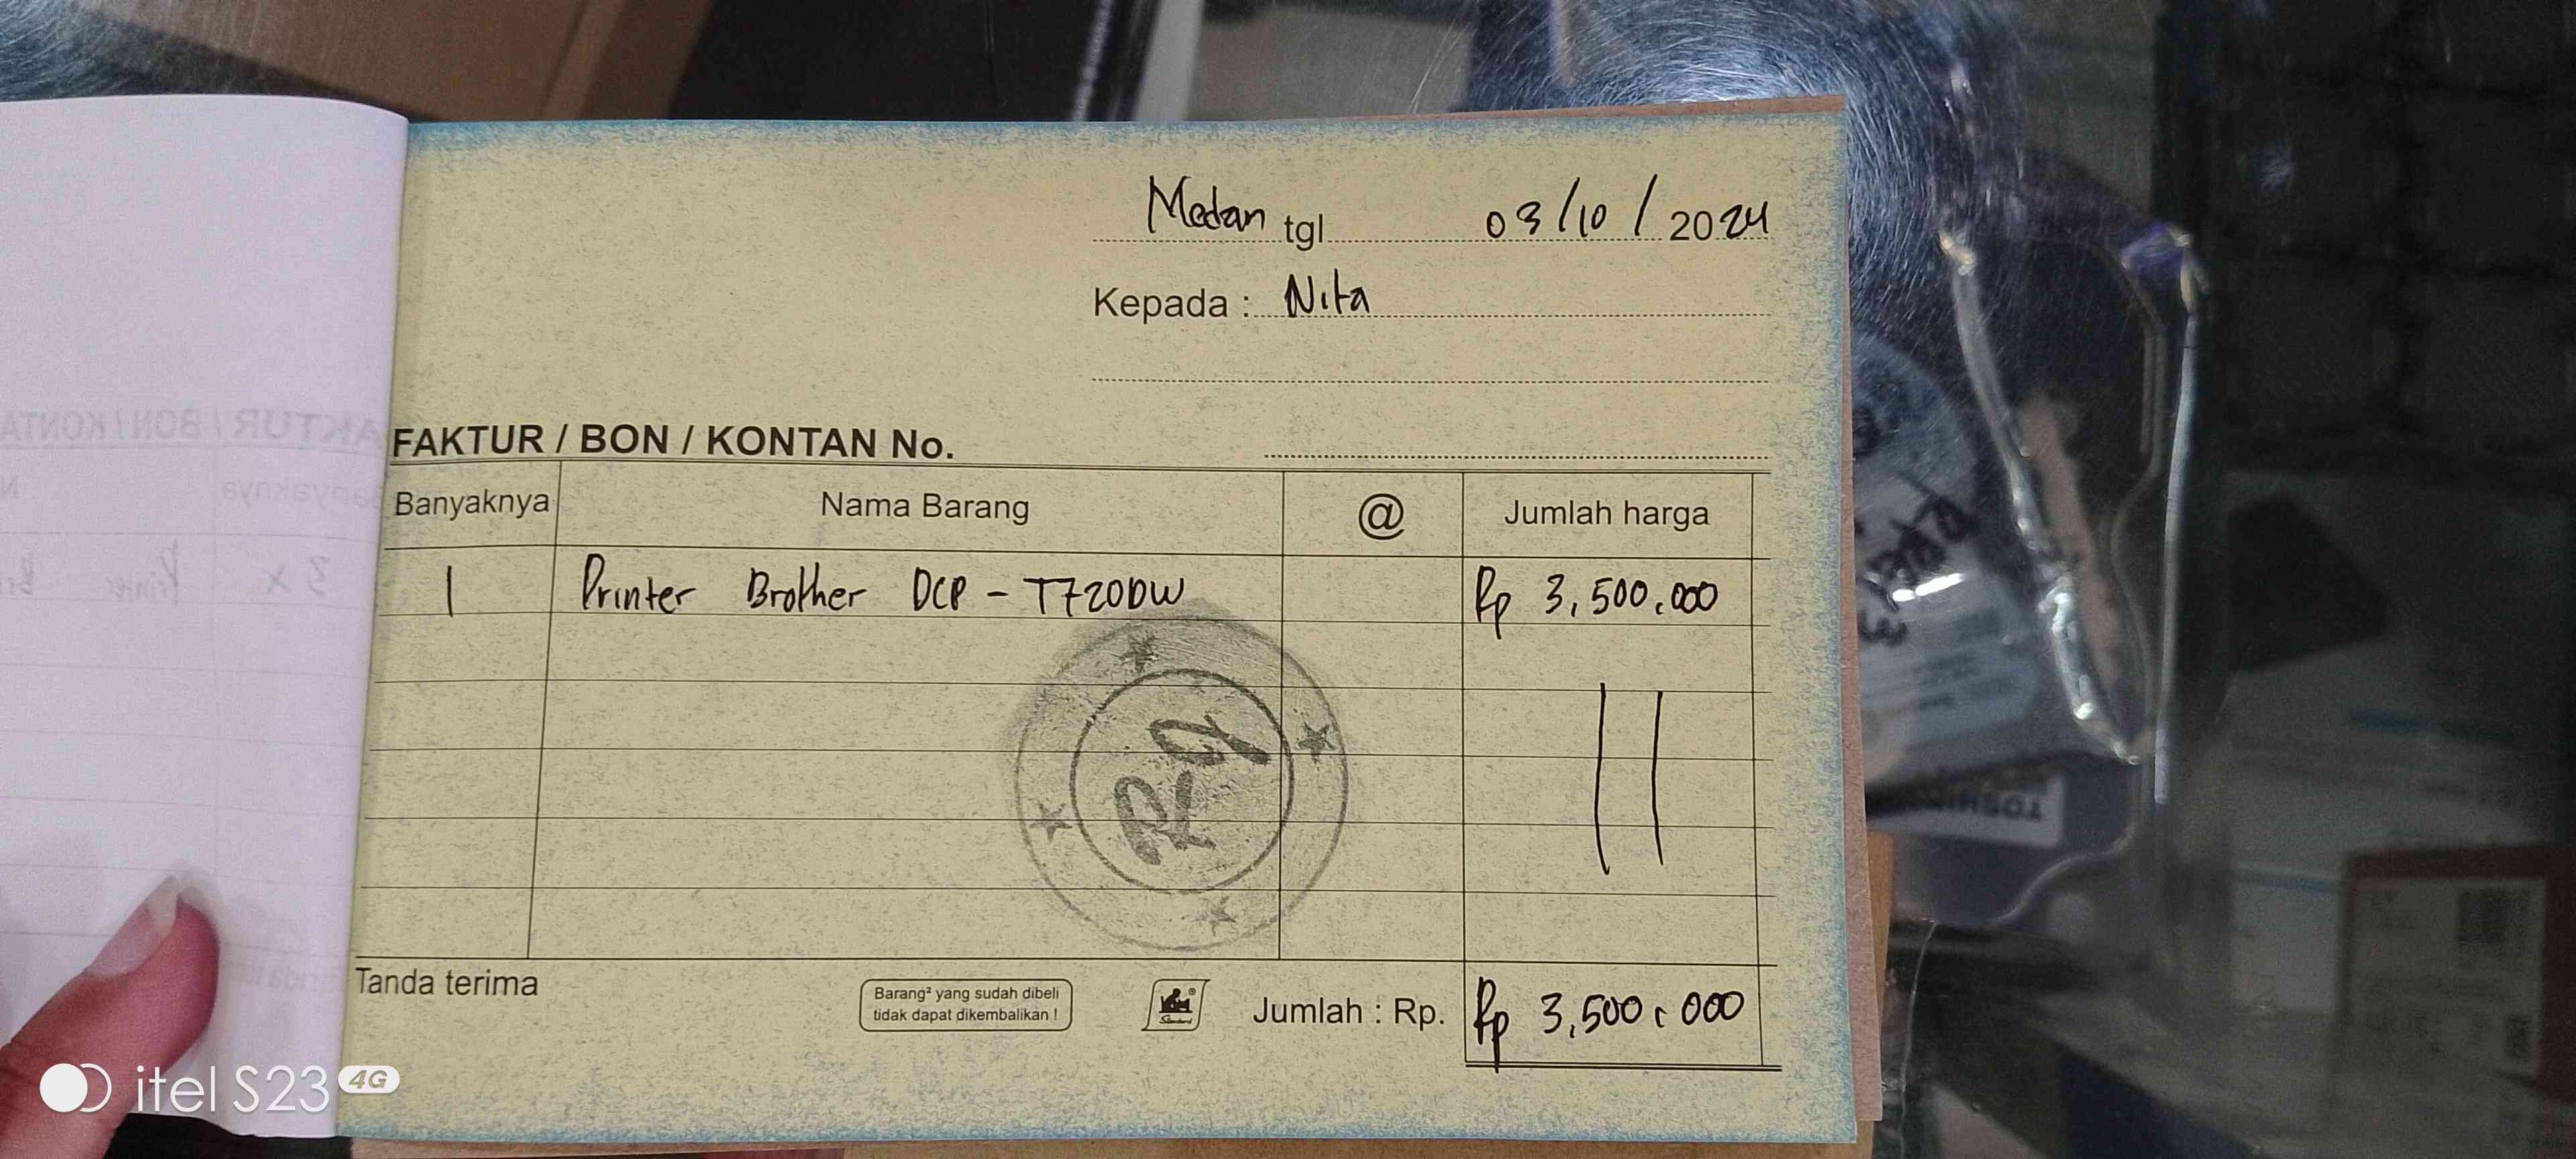 Medan tgl 03/10/2024
Kepada : Nita
FAKTUR / BON / KONTAN No.
Banyaknya Nama Barang @ Jumlah harga
1 Printer Brother DCP - T720DW Rp 3,500,000
Tanda terima
Barang² yang sudah dibeli
tidak dapat dikembalikan !
Jumlah : Rp. Rp 3,500,000
itel S23 4G